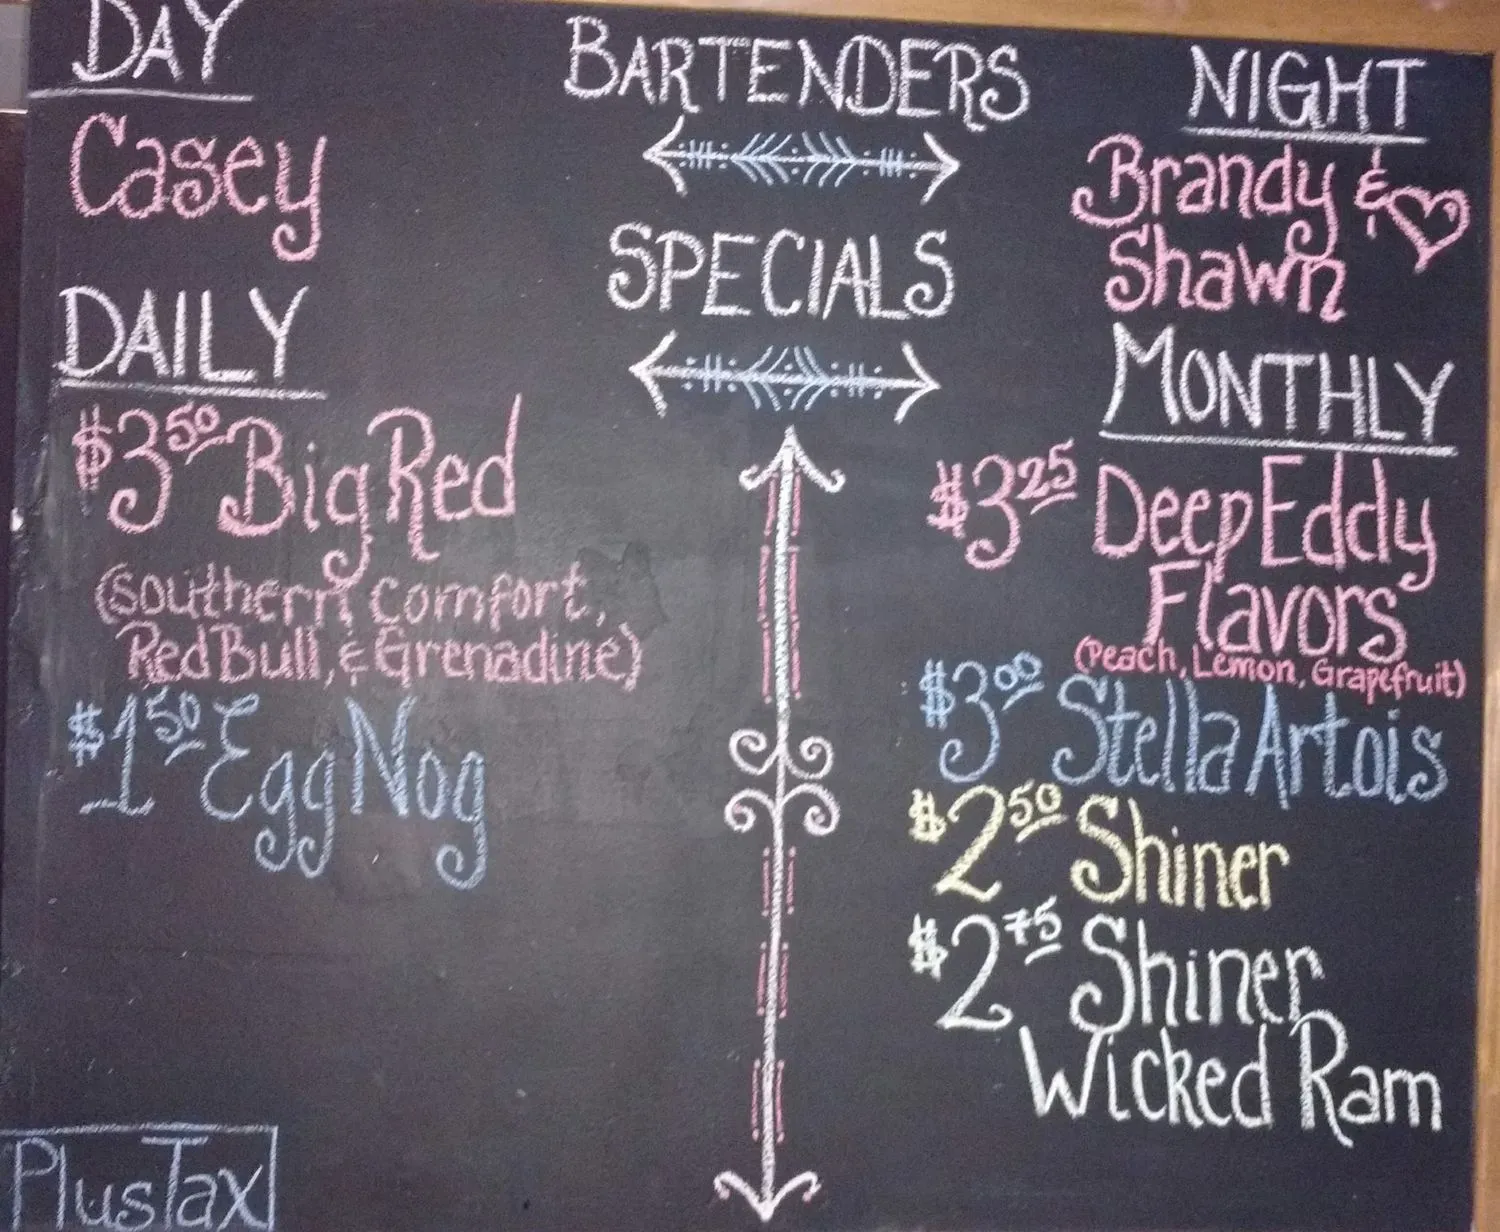 DAY
BARTENDERS
NIGHT
Casey
Brandy &
Shawn
SPECIALS
DAILY
$3.50 Big Red
(Southern Comfort,
Red Bull, & Grenadine)
$1.50 Egg Nog
MONTHLY
$3.25 Deep Eddy
Flavors
(Peach, Lemon, Grapefruit)
$3.00 Stella Artois
$2.50 Shiner
$2.75 Shiner
Wicked Ram
Plus Tax